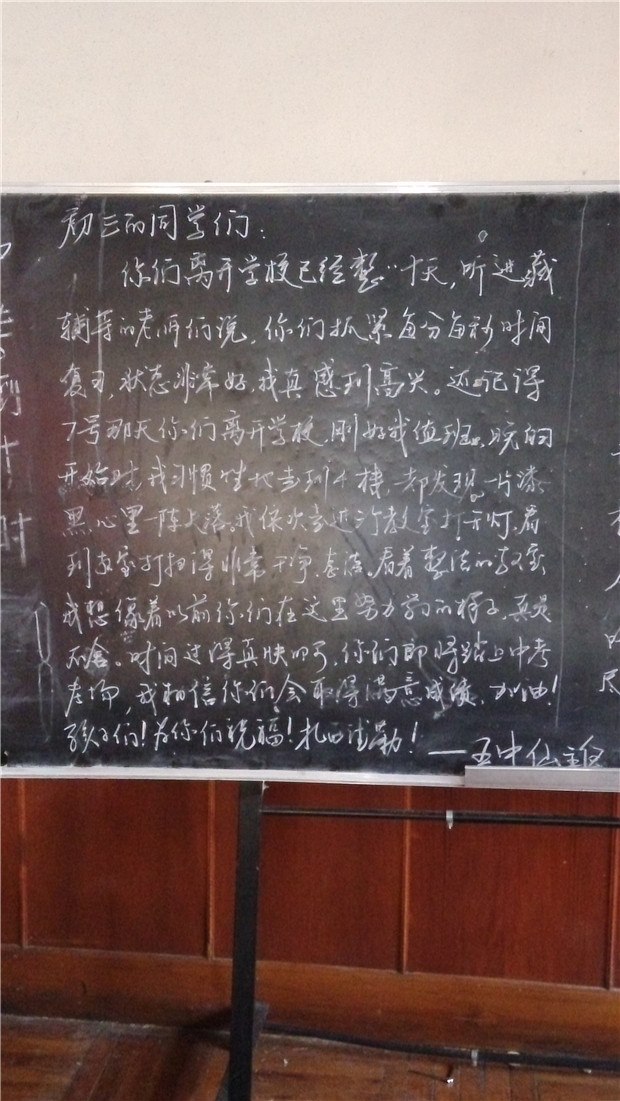 初三的同学们：
你们离开学校已经整二十天，听进藏
辅导的老师们说，你们抓紧每分每秒时间
复习，状态非常好，我真感到高兴。还记得
7号那天你们离开学校，刚好我值班，晚自
开始时，我习惯性地走到4楼，却发现一片漆
黑，心里一阵失落。我依次走进教室打开灯，看
到教室打扫得非常干净、整洁。看着整洁的教室
我想像着以前你们在这里努力的样子，真是
不舍。时间过得真快呀，你们即将踏上中考
考场，我相信你们会取得满意成绩，加油！
孩子们！为你们祝福！扎西德勒！
——五中仏
到
时
尽